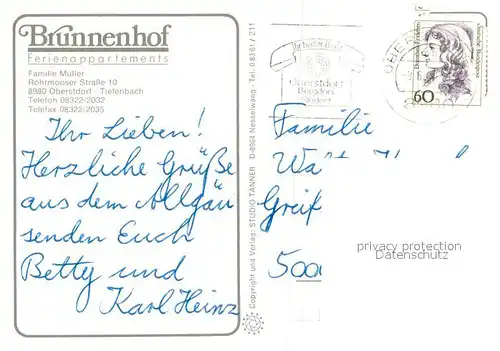 Brunnenhof
Ferienappartements
Familie Müller
Rohrmooser Straße 10
8980 Oberstdorf - Tiefenbach
Telefon 08322/2032
Telefax 08322/2035
Ihr Lieben!
Herzliche Grüße
aus dem Allgäu
senden Euch
Betty und
Karl Heinz
Copyright und Verlag: STUDIO TANNER D-8964 Nesselwang - Tel. 08361 / 211
Oberstdorf
60
Deutsche Bundespost
Familie
privacy protection
Datenschutz